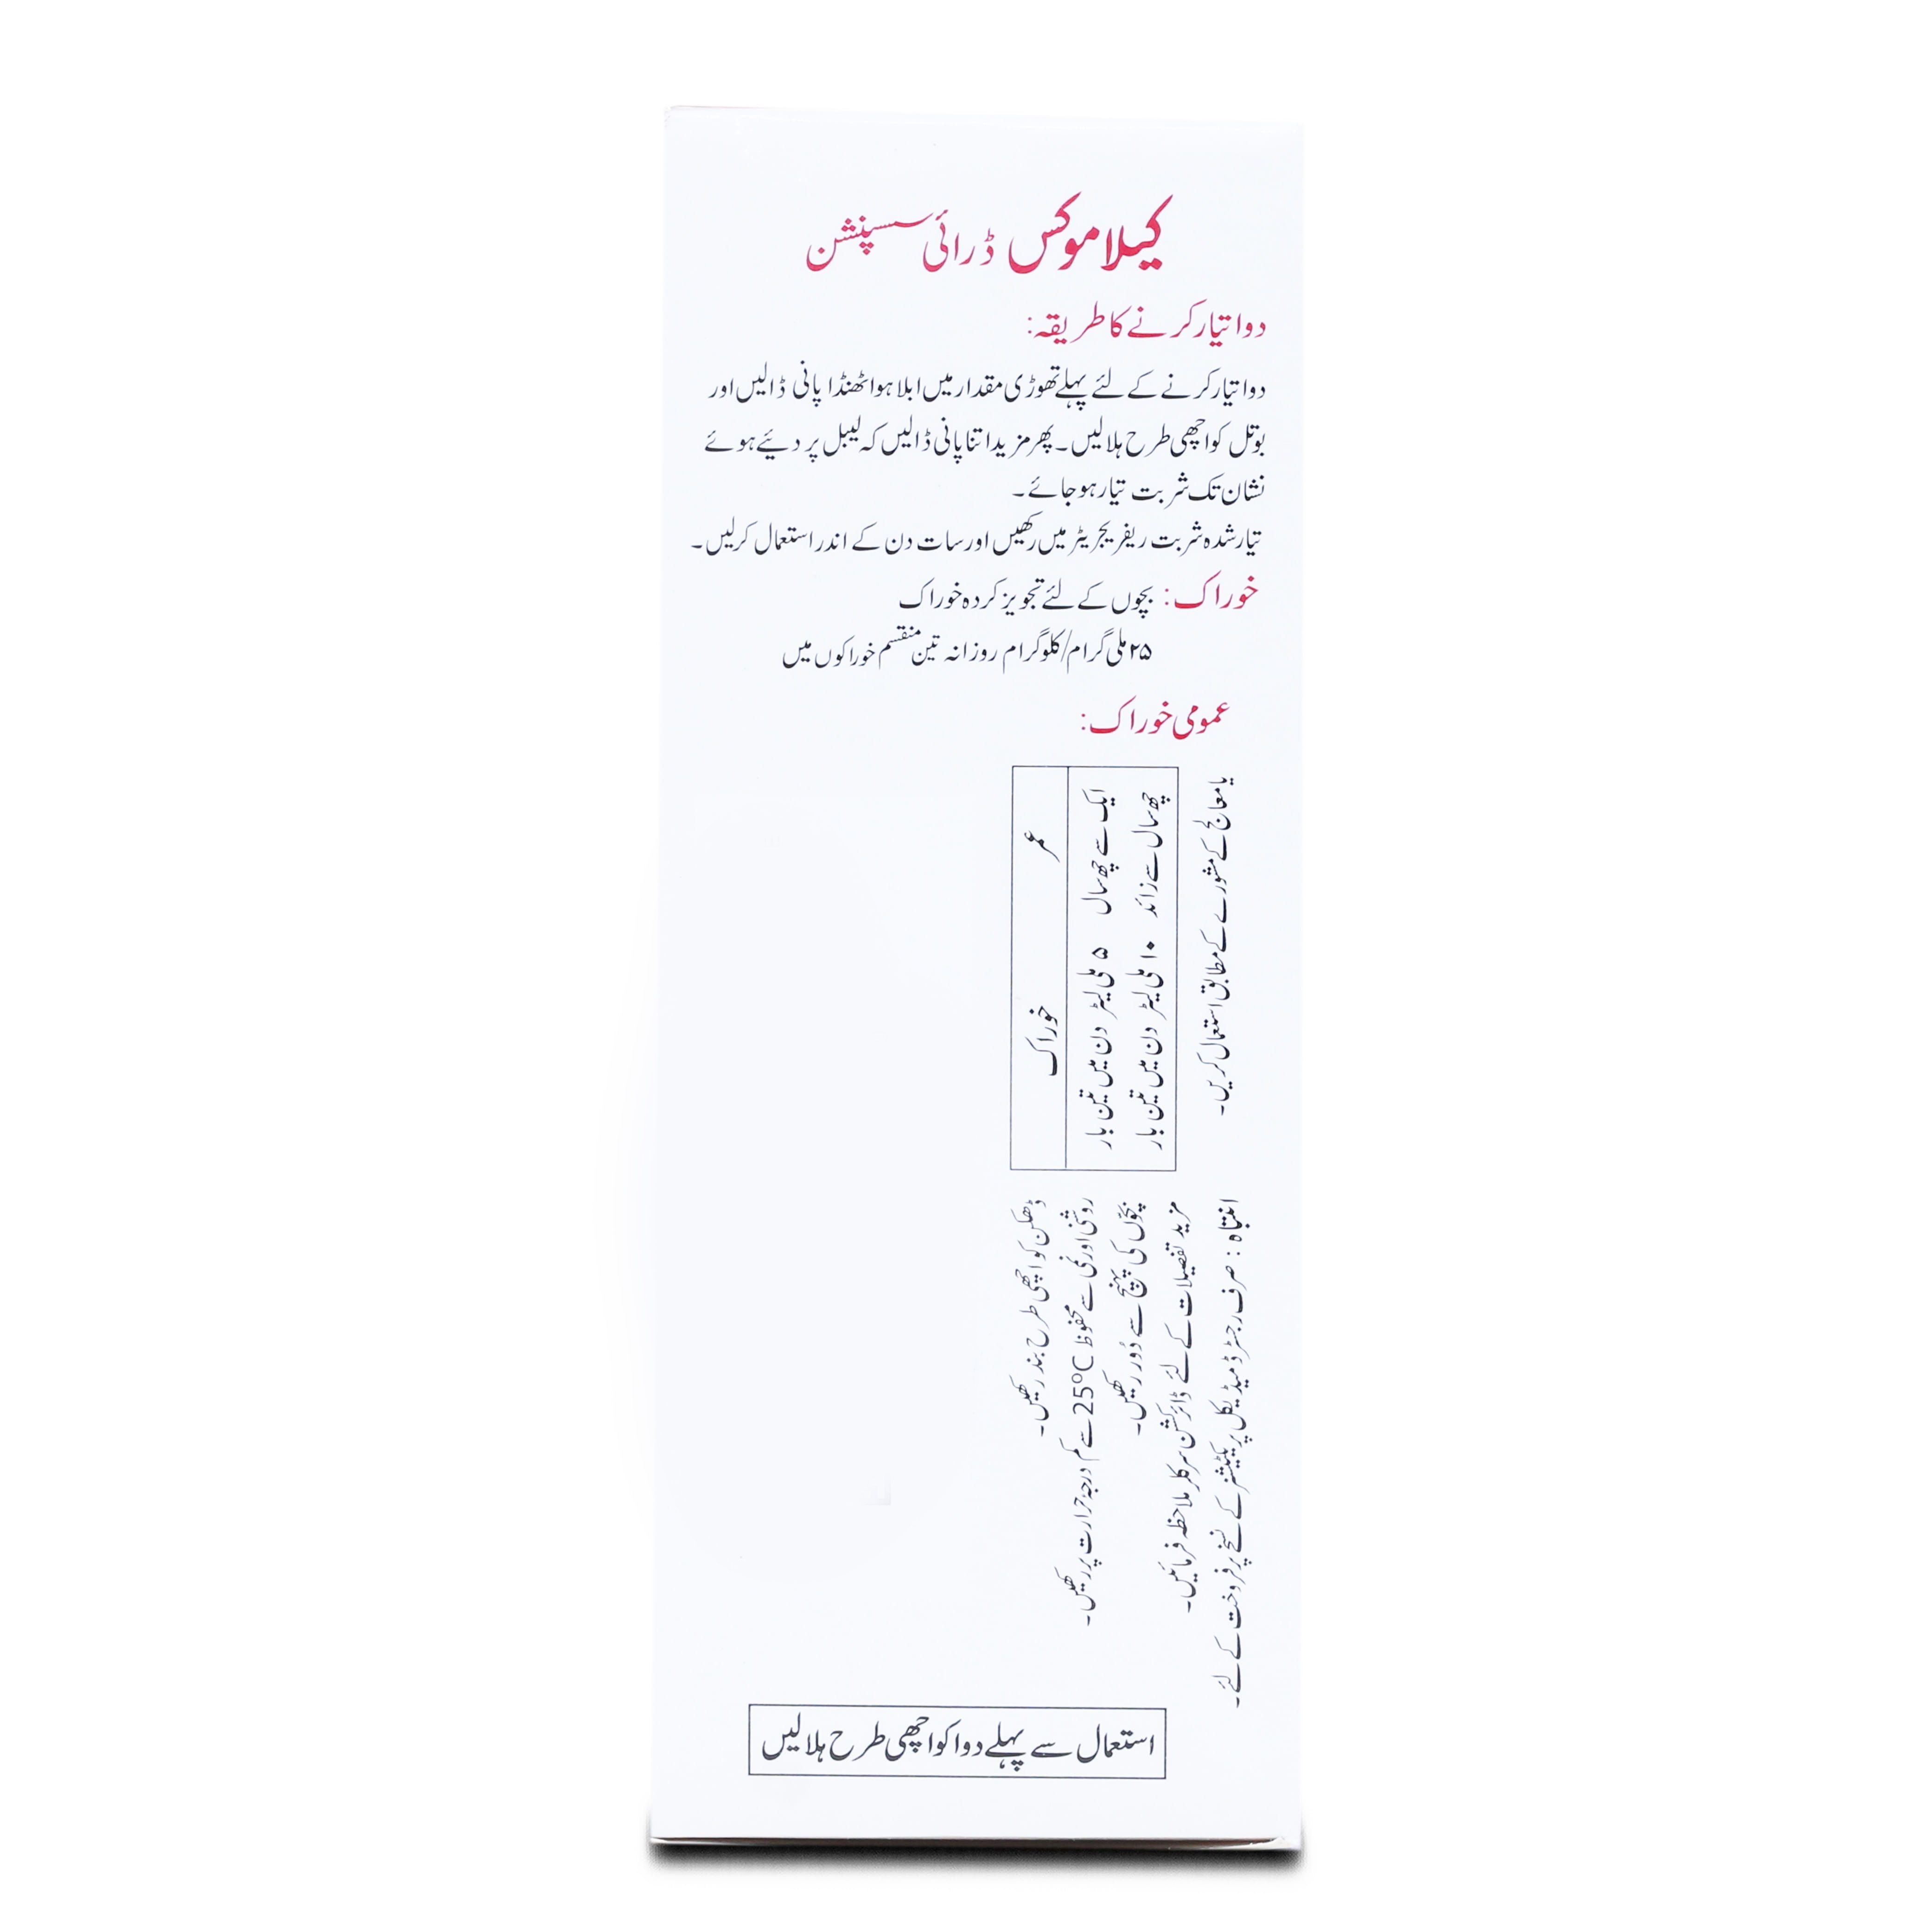 کیلاموکس ڈرائی سسپنشن
دوا تیار کرنے کا طریقہ:
دوا تیار کرنے کے لئے پہلے تھوڑی مقدار میں ابلا ہوا ٹھنڈا پانی ڈالیں اور
بوتل کو اچھی طرح ہلالیں۔ پھر مزید اتنا پانی ڈالیں کہ لیبل پر دئیے ہوئے
نشان تک شربت تیار ہوجائے۔
تیار شدہ شربت ریفریجریٹر میں رکھیں اور سات دن کے اندر استعمال کرلیں۔
خوراک: بچوں کے لئے تجویز کردہ خوراک
۲۵ ملی گرام/کلوگرام روزانہ تین منقسم خوراکوں میں
عمومی خوراک:
عمر خوراک
ایک سے چھ سال ۵ ملی لیٹر دن میں تین بار
چھ سال سے زائد ۱۰ ملی لیٹر دن میں تین بار
یا معالج کے مشورے کے مطابق استعمال کریں۔
ڈھکن کو اچھی طرح بند رکھیں۔
روشنی اور نمی سے محفوظ 25°C سے کم درجۂ حرارت پر رکھیں۔
بچّوں کی پہنچ سے دُور رکھیں۔
مزید تفصیلات کے لئے ڈائرکشن سرکلر ملاحظہ فرمائیں۔
انتباہ : صرف رجسٹرڈ میڈیکل پریکٹیشنر کے نسخے پر فروخت کے لئے۔
استعمال سے پہلے دوا کو اچھی طرح ہلالیں